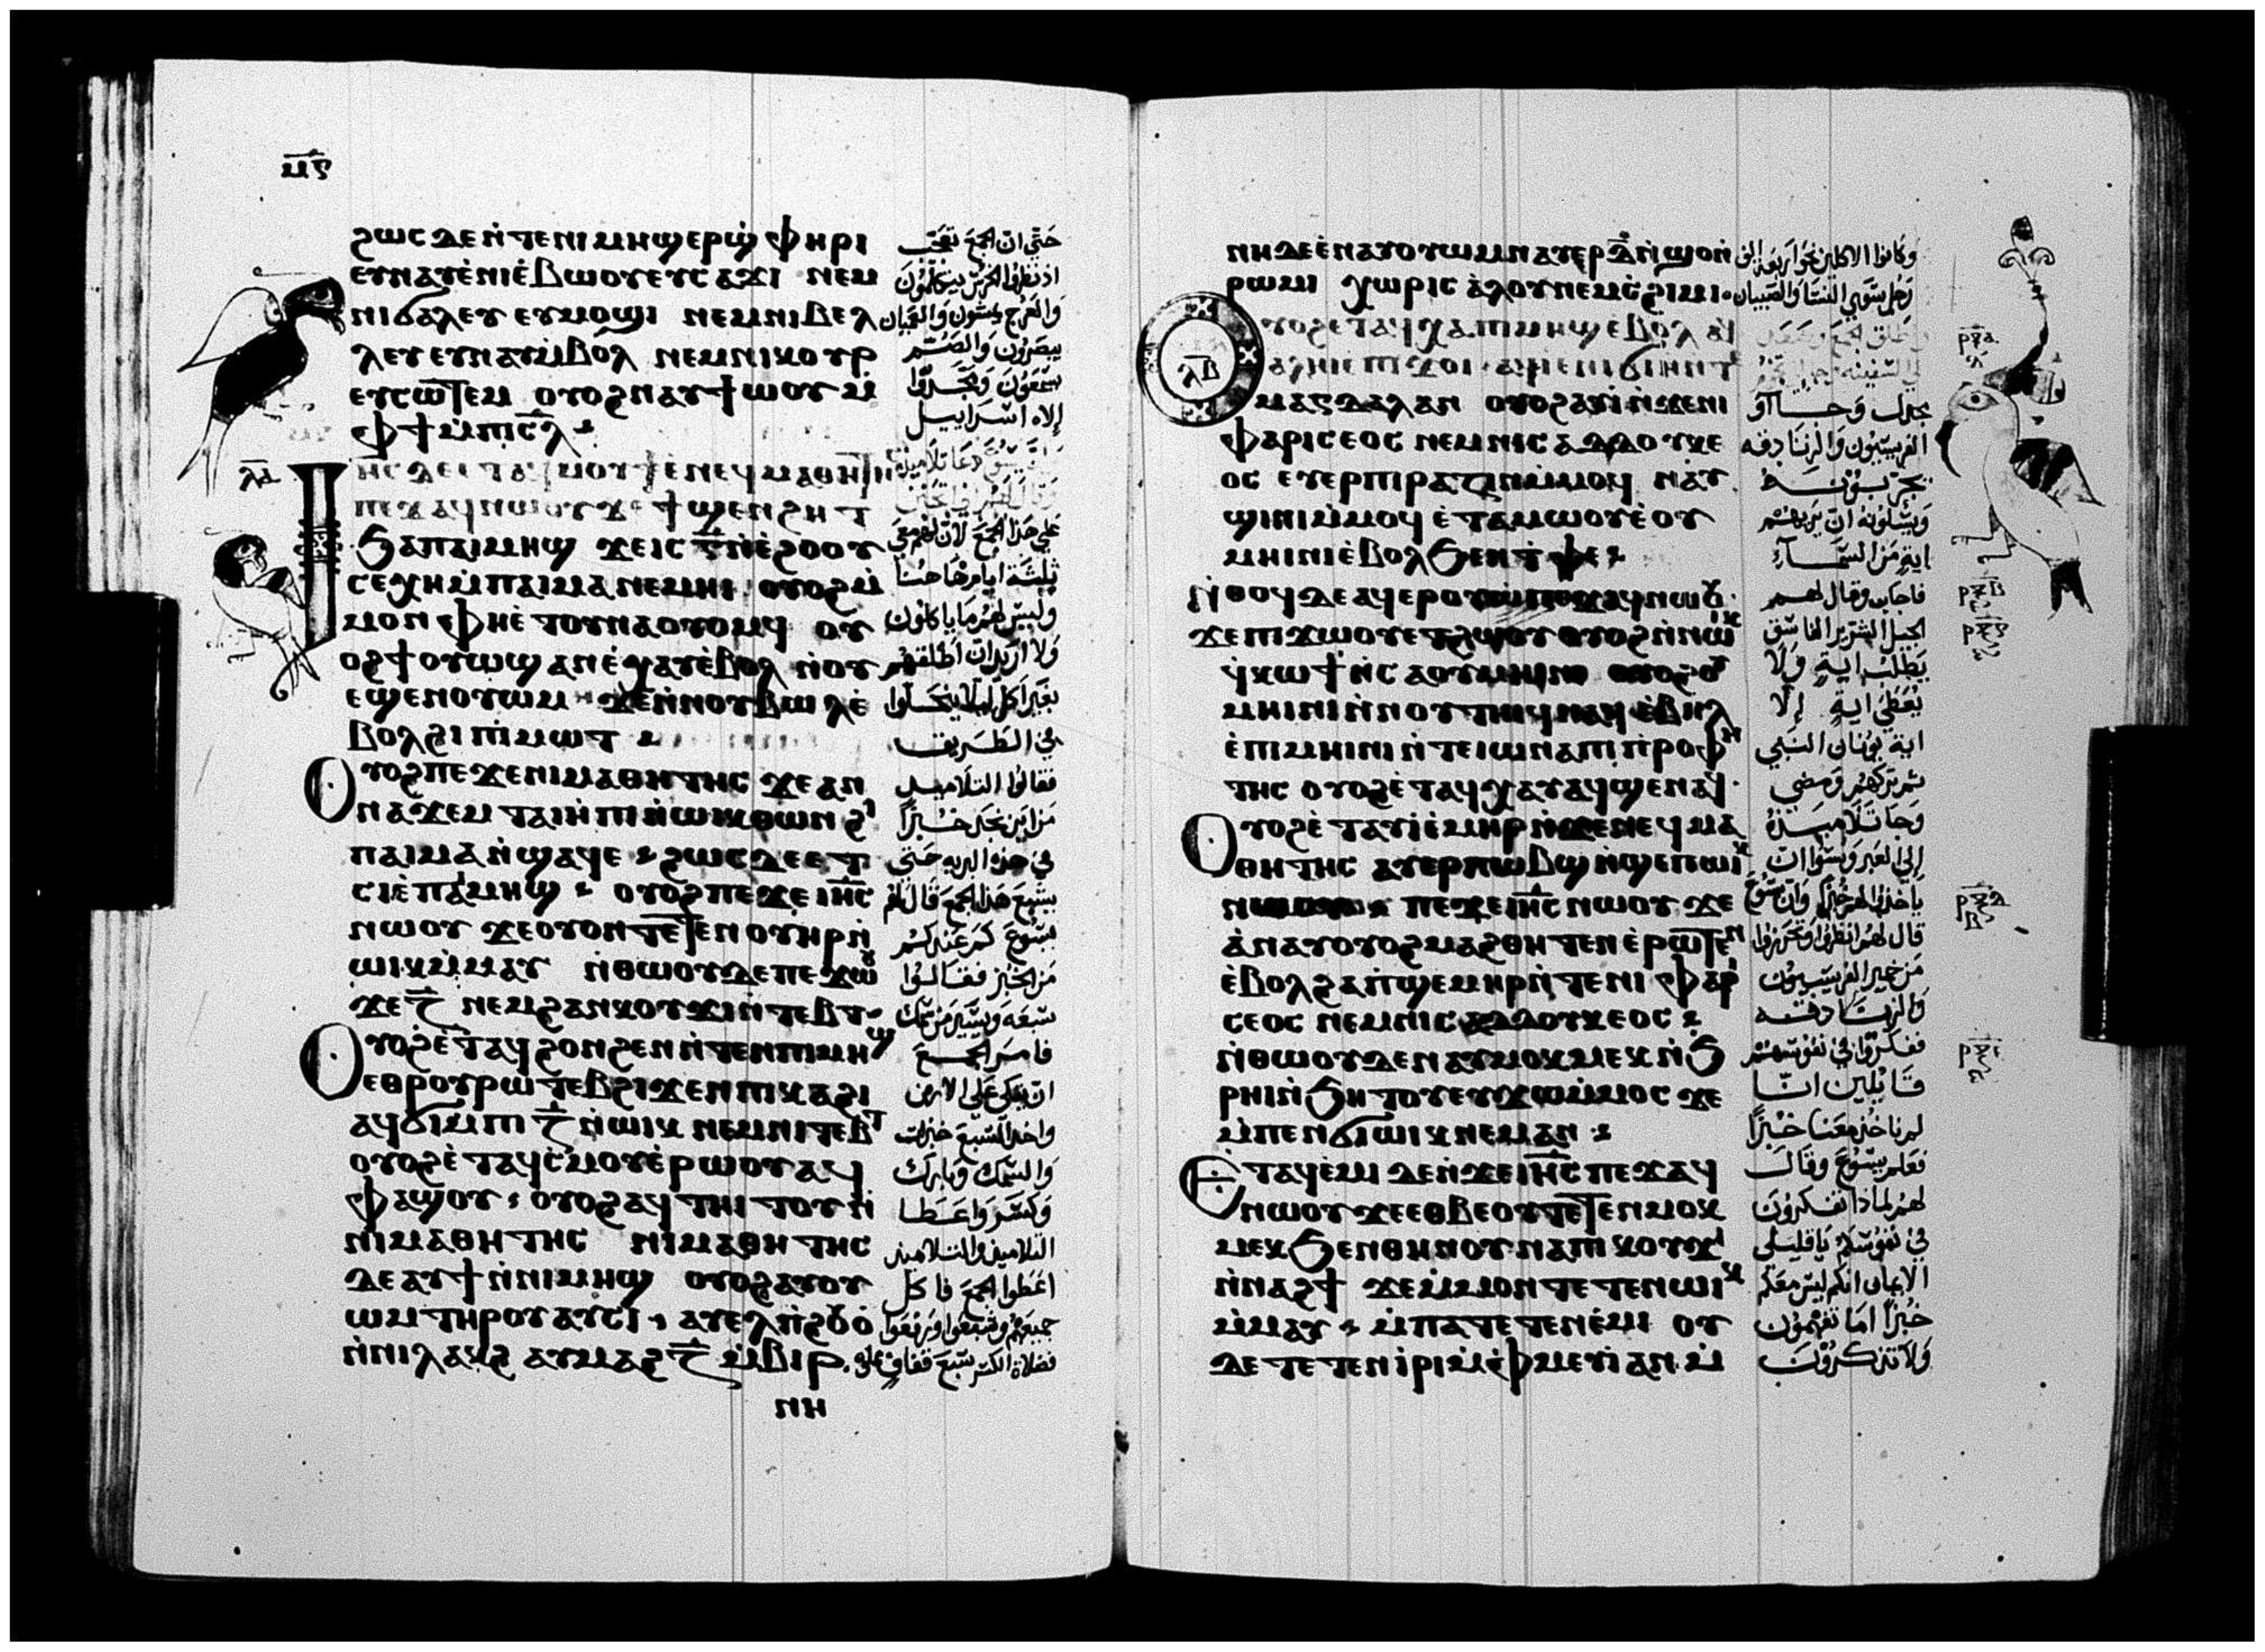 ⲙⲋ
ϩⲱⲥ ⲇⲉ ⲛ̀ⲧⲉⲛⲓⲙⲏϣ ⲉⲣϣ̀ⲫⲏⲣⲓ
ⲉⲩⲛⲁⲩ ⲉ̀ⲛⲓⲉ̀ⲃⲱⲟⲩ ⲉⲩⲥⲁϫⲓ ⲛⲉⲙ
ⲛⲓϭⲁⲗⲉⲩ ⲉⲩⲙⲟϣⲓ ⲛⲉⲙⲛⲓⲃⲉⲗ
ⲗⲉⲩ ⲉⲩⲛⲁⲩⲙ̀ⲃⲟⲗ ⲛⲉⲙⲛⲓⲕⲟⲩⲣ
ⲉⲩⲥⲱⲧⲉⲙ ⲟⲩⲟϩ ⲛⲁⲩϯⲱⲟⲩ ⲙ̀
ⲫϯ ⲙ̀ⲡⲓⲥ̅ⲗ̅
ⲗⲁ
ⲓⲏⲥ ⲇⲉ ⲉⲧⲁϥⲙⲟⲩϯ ⲉⲛⲉϥⲙⲁⲑⲏⲧⲏⲥ
ⲡⲉϫⲁϥ ⲛⲱⲟⲩ ϫⲉ ϯϣⲉⲛϩⲏⲧ
ϧⲁⲡⲁⲓⲙⲏϣ ϫⲉⲓⲥ ⲅ̅ ⲛ̀ⲉ̀ϩⲟⲟⲩ
ⲥⲉⲭⲏ ⲙ̀ⲡⲁⲓⲙⲁ ⲛⲉⲙⲏⲓ ⲟⲩⲟϩ ⲙ̀
ⲙⲟⲛ ⲫⲏⲉ̀ⲧⲟⲩⲛⲁⲟⲩⲟⲙϥ ⲟⲩ
ⲟϩ ϯⲟⲩⲱϣ ⲁⲛ ⲉ̀ⲭⲁⲩ ⲉ̀ⲃⲟⲗ ⲛ̀ⲟⲩ
ⲉϣⲉⲛⲟⲩⲱⲙ ϫⲉⲛⲛⲟⲩⲃⲱⲗ ⲉ̀
ⲃⲟⲗ ϩⲓ ⲡⲓⲙⲱⲓⲧ
ⲟⲩⲟϩ ⲡⲉϫⲉ ⲛⲓⲙⲁⲑⲏⲧⲏⲥ ϫⲉ ⲁⲛ
ⲛⲁϫⲉⲙ ⲧⲁⲓⲏⲡⲓ ⲛ̀ⲱⲓⲕ ⲑⲱⲛ ϩⲓ
ⲡⲁⲓⲙⲁ ⲛ̀ϣⲁϥⲉ ϩⲱⲥⲇⲉ ⲉⲧ
ⲥⲓⲉ̀ ⲡⲁⲓⲙⲏϣ ⲟⲩⲟϩ ⲡⲉϫⲉ ⲓⲏ̅ⲥ̅
ⲛⲱⲟⲩ ϫⲉ ⲟⲩⲟⲛⲧⲉⲧⲉⲛ ⲟⲩⲏⲣ ⲛ̀
ⲱⲓⲕ ⲙ̀ⲙⲁⲩ ⲛ̀ⲑⲱⲟⲩ ⲇⲉ ⲡⲉϫⲱⲟⲩ
ϫⲉ ⲍ̅ ⲛⲉⲙ ϩⲁⲛⲕⲟⲩϫⲓ ⲛ̀ⲧⲉⲃⲧ
ⲟⲩⲟϩ ⲉ̀ⲧⲁϥϩⲟⲛϩⲉⲛ ⲛ̀ⲧⲉⲛⲡⲓⲙⲏϣ
ⲉⲑⲣⲟⲩⲣⲱⲧⲉⲃ ϩⲓϫⲉⲛ ⲡⲓⲕⲁϩⲓ
ⲁϥϭⲓ ⲙ̀ⲡⲓ ⲍ̅ ⲛ̀ⲱⲓⲕ ⲛⲉⲙⲛⲓⲧⲉⲃⲧ
ⲟⲩⲟϩ ⲉ̀ⲧⲁϥⲥ̀ⲙⲟⲩ ⲉ̀ⲣⲱⲟⲩ ⲁϥ
ⲫⲁϣⲟⲩ ⲟⲩⲟϩ ⲁϥⲧⲏⲓⲧⲟⲩ ⲛ̀
ⲛⲓⲙⲁⲑⲏⲧⲏⲥ ⲛⲓⲙⲁⲑⲏⲧⲏⲥ
ⲇⲉ ⲁⲩϯ ⲛ̀ⲛⲓⲙⲏϣ ⲟⲩⲟϩ ⲁⲩⲟⲩ
ⲱⲙ ⲧⲏⲣⲟⲩ ⲁⲩⲥⲓ ⲁⲩⲉⲗ ⲡ̀ϩⲟⲩⲟ̀
ⲛ̀ⲛⲓⲗⲁⲕϩ ⲁⲩⲙⲁϩ ⲍ̅ ⲙ̀ⲃⲓⲣ
ⲛⲏ
حتي ان الجمع تعجب
اذ نظروا الخرس يتكلمون
والعرج يمشون والعميان
يبصرون والصم
يسمعون ومجدوا
إلاه اسراييل
علي هذا الجمع لان لهم معي
ثلثة ايام هاهنا
وليس لهم ما ياكلون
ولا اريد ان اطلقهم
بغير اكل ليلا ينحلوا
في الطريق
فقالوا التلاميد
من اين نجد خبزا
في هذه البريه حتى
يشبع هذا الجمع قال لهم
يسوع كم عندكم
من الخبز فقالوا
سبعه ويسير من سمك
فامر الجمع
ان يتكى على الارض
واخد السبع خبزات
والسمك وبارك
وكسر واعطا
التلاميد والتلاميد
اعطوا الجمع فاكل
جميعهم وشبعوا ورفعوا
فضلات الكسر سبع قفاف مملوه
ⲛⲏ ⲇⲉ ⲉ̀ⲛⲁⲩⲟⲩⲱⲙ ⲛⲁⲩⲉⲣ ⲇ̅ ⲛ̀ϣⲟ ⲛ̀
ⲣⲱⲙⲓ ⲭⲱⲣⲓⲥ ⲁ̀ⲗⲟⲩ ⲛⲉⲙ ⲥ̀ϩⲓⲙⲓ
ⲗⲃ
ⲟⲩⲟϩ ⲉⲧⲁϥⲭⲁ ⲡⲓⲙⲏϣ ⲉ̀ⲃⲟⲗ ⲁϥ
ⲁⲗⲏⲓ ⲉ̀ⲡⲓϫⲟⲓ ⲁϥⲓ ⲉⲛⲓϭⲓⲏ ⲛ̀ⲧⲉ
ⲙⲁⲅⲇⲁⲗⲁⲛ ⲟⲩⲟϩ ⲁⲩⲓ̀ ⲛ̀ϫⲉⲛⲓ
ⲫⲁⲣⲓⲥⲉⲟⲥ ⲛⲉⲙⲛⲓⲥⲁⲇⲇⲟⲩⲕⲉ
ⲟⲥ ⲉⲩⲉⲣⲡⲓⲣⲁⲍⲓⲛ ⲙ̀ⲙⲟϥ ⲛⲁⲩ
ϣⲓⲛⲓ ⲙ̀ⲙⲟϥ ⲉ̀ⲧⲁⲙⲱⲟⲩ ⲉ̀ⲟⲩ
ⲙⲏⲓⲛⲓ ⲉ̀ⲃⲟⲗ ϧⲉⲛ ⲧ̀ⲫⲉ
ⲛ̀ⲑⲟϥ ⲇⲉ ⲁϥⲉⲣⲟⲩⲱ̀ ⲡⲉϫⲁϥ ⲛⲱⲟⲩ
ϫⲉ ⲡⲓϫⲱⲟⲩ ⲉⲧϩⲱⲟⲩ ⲟⲩⲟϩ ⲛ̀ⲛⲱⲓⲕ
ϥ̀ⲕⲱϯ ⲛ̀ⲥⲁ ⲟⲩⲙⲏⲓⲛⲓ ⲟⲩⲟϩ ⲟⲩ
ⲙⲏⲓⲛⲓ ⲛ̀ⲛⲟⲩⲧⲏⲓϥ ⲛⲁϥ ⲉ̀ⲃⲏⲗ
ⲉ̀ⲡⲓⲙⲏⲓⲛⲓ ⲛ̀ⲧⲉ ⲓⲱⲛⲁ ⲡⲓⲡ̀ⲣⲟⲫⲏ
ⲧⲏⲥ ⲟⲩⲟϩ ⲉ̀ⲧⲁϥⲭⲁⲩ ⲁϥϣⲉⲛⲁϥ
ⲟⲩⲟϩ ⲉ̀ⲧⲁⲩⲓ̀ ⲉ̀ⲙⲏⲣ ⲛ̀ϫⲉⲛⲉϥⲙⲁ
ⲑⲏⲧⲏⲥ ⲁⲩⲉⲣⲡⲱⲃϣ ⲛ̀ϣⲉⲡ ⲱⲓⲕ
ⲡⲉϫⲉ ⲓⲏ̅ⲥ̅ ⲛⲱⲟⲩ ϫⲉ
ⲁ̀ⲛⲁⲩ ⲟⲩⲟϩ ⲙⲁϩⲑⲏⲧⲉⲛ ⲉ̀ⲣⲱⲧⲉⲛ
ⲉ̀ⲃⲟⲗ ϩⲁ ⲡ̀ϣⲉⲙⲏⲣ ⲛ̀ⲧⲉⲛⲓⲫⲁⲣⲓ
ⲥⲉⲟⲥ ⲛⲉⲙⲛⲓⲥⲁⲇⲇⲟⲩⲕⲉⲟⲥ
ⲛ̀ⲑⲱⲟⲩ ⲇⲉ ⲛⲁⲩⲙⲟⲕⲙⲉⲕ ⲛ̀ϧ
ⲣⲏⲓ ⲛ̀ϧⲏⲧⲟⲩ ⲉⲩϫⲱⲙ̀ⲙⲟⲥ ϫⲉ
ⲙ̀ⲡⲉⲛϭⲓ ⲱⲓⲕ ⲛⲉⲙⲁⲛ
ⲉⲧⲁϥⲉ̀ⲙⲓ ⲇⲉ ⲛ̀ϫⲉ ⲓⲏ̅ⲥ̅ ⲡⲉϫⲁϥ
ⲛⲱⲟⲩ ϫⲉ ⲉⲑⲃⲉⲟⲩ ⲧⲉⲧⲉⲛⲙⲟⲕ
ⲙⲉⲕ ϧⲉⲛ ⲑⲏⲛⲟⲩ ⲛⲁ ⲡⲓⲕⲟⲩϫⲓ
ⲛ̀ⲛⲁϩϯ ϫⲉ ⲙ̀ⲙⲟⲛⲧⲉⲧⲉⲛ ⲱⲓⲕ
ⲙ̀ⲙⲁⲩ ⲙ̀ⲡⲁⲧⲉⲧⲉⲛⲉ̀ⲙⲓ ⲟⲩ
ⲇⲉ ⲧⲉⲧⲉⲛⲓ̀ⲣⲓ ⲙ̀ⲫ̀ⲙⲉⲩⲓ̀ ⲁⲛ ⲙ̀
وكانوا الاكلين نحو اربعة الف
رجل سوي النسا والصبيان
مجدل وجاآوا
الفريسيون والزنادقه
يجربونه
ويسلونه ان يريهم
اية من السمآء
فاجاب وقال لهم
الجيل الشرير الفاسق
يطلب اية ولا
يعطي اية إلا
اية يونان النبي
ثم تركهم ومضى
وجا تلاميذه
إلى العبر ونسوا ان
ياخذوا لهم خبزا وان يسوع
قال لهم انظروا وتحرزوا
من خمير الفريسيون
والزنادقه
ففكروا في نفوسهم
قايلين اننا
لم ناخذ معنا خبزا
فعلم يسوع وقال
لهم لماذا تفكرون
في نفوسكم يا قليلي
الايمان انكم ليس معكم
خبزا اما تفهمون
ولا تذكرون